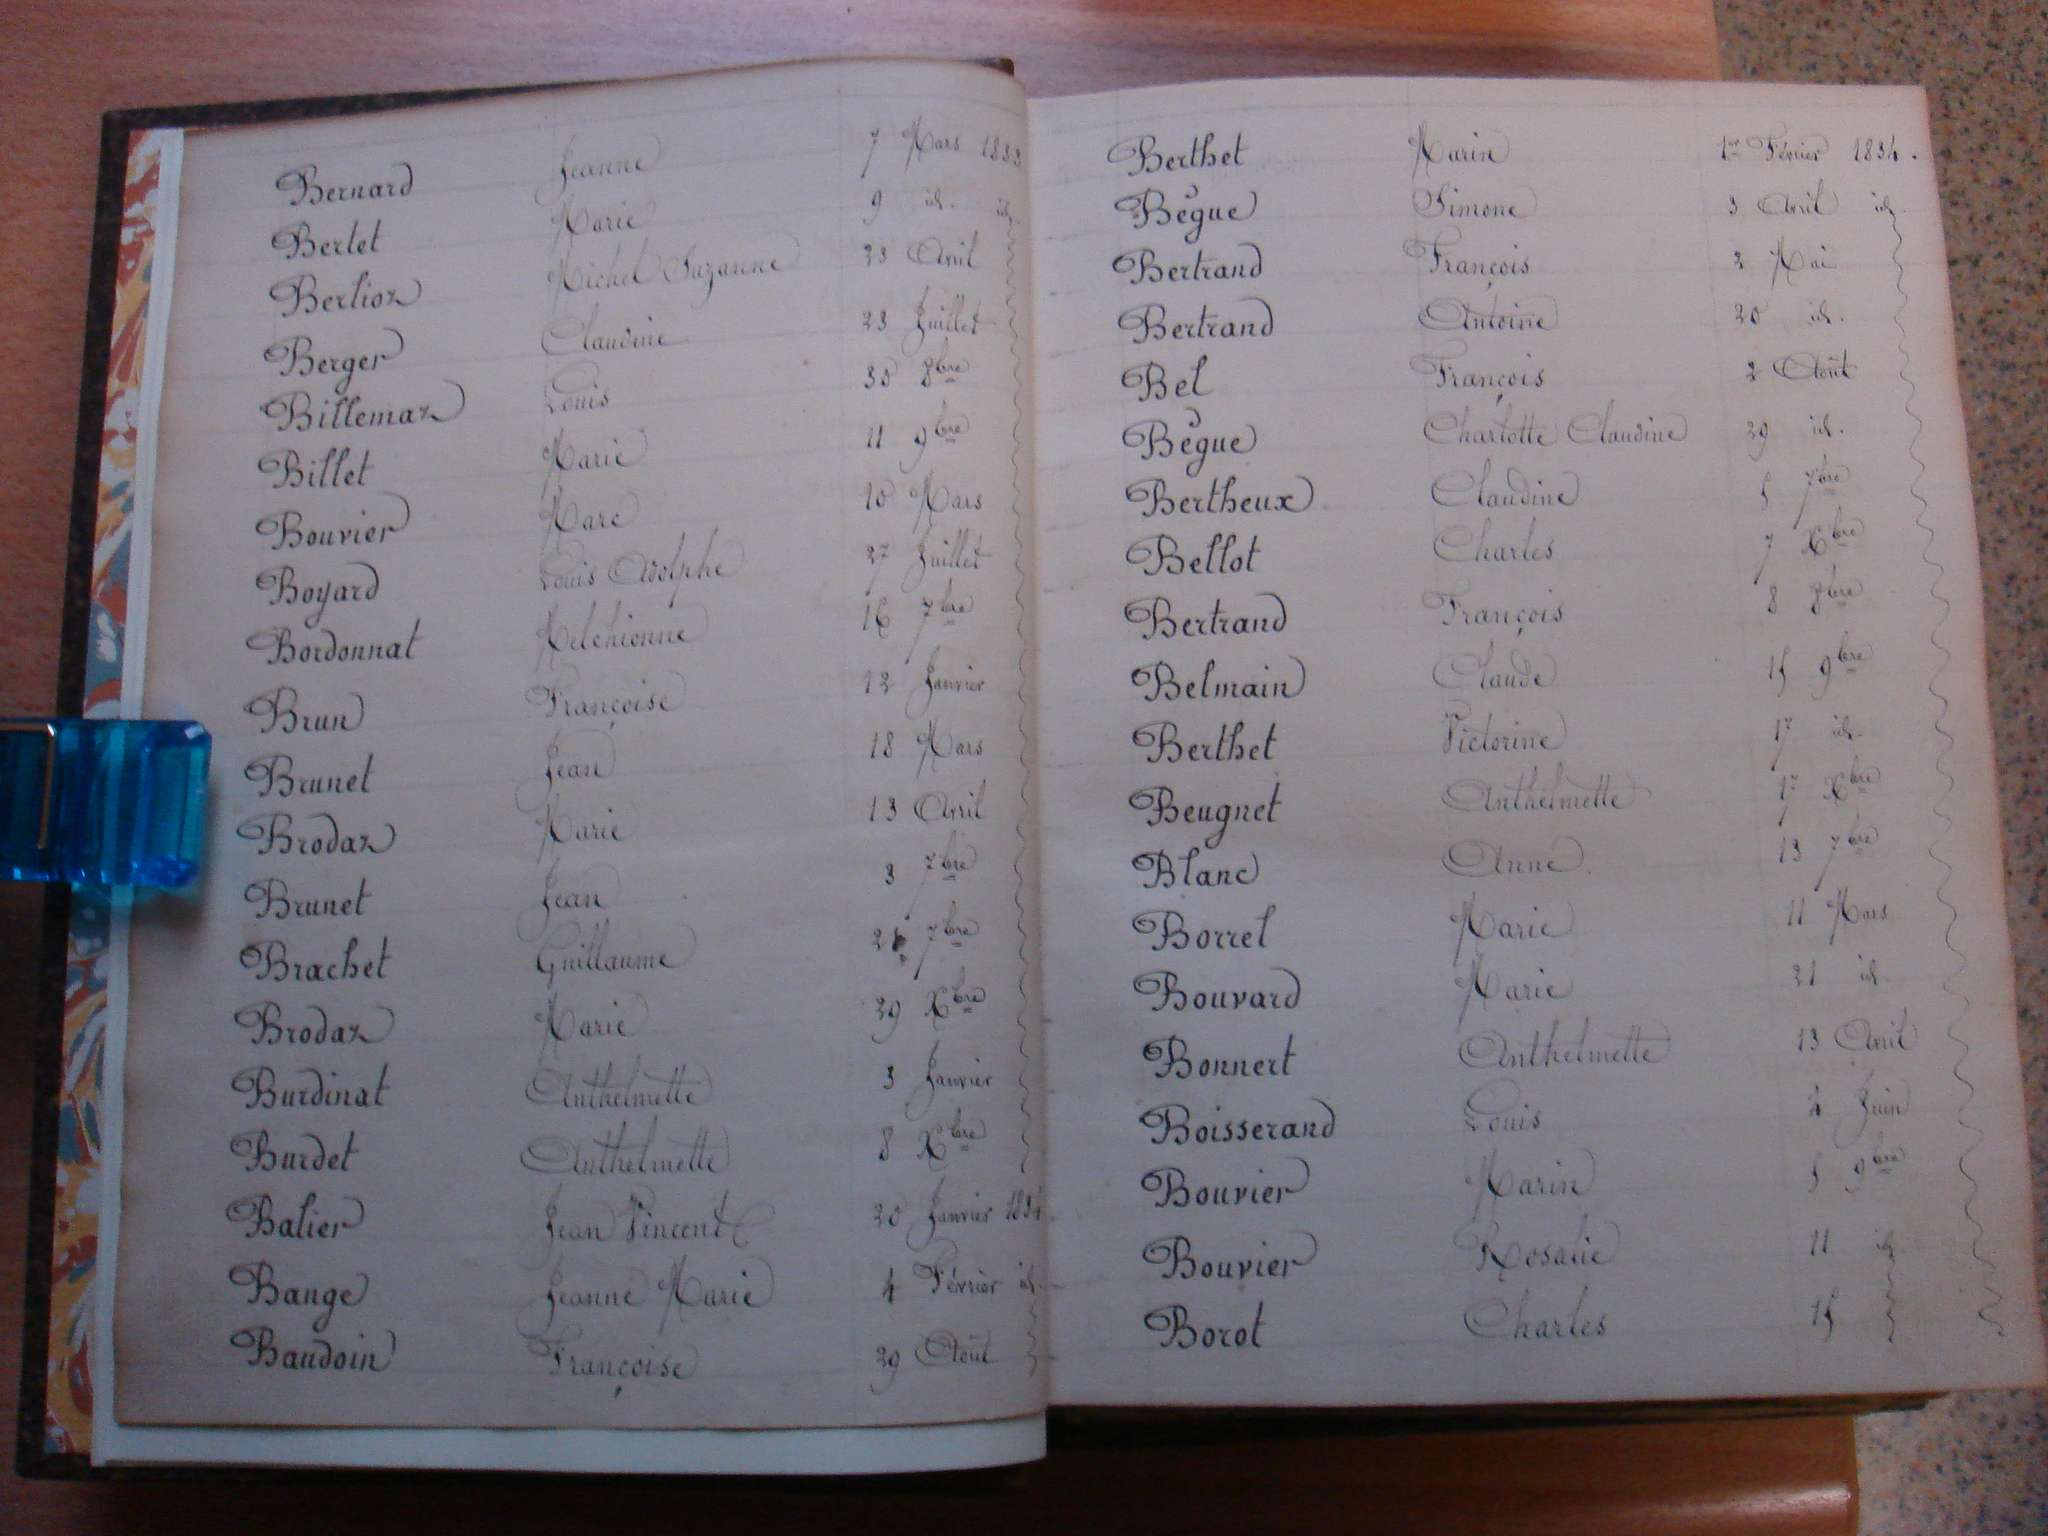 Bernard Jeanne 7 Mars 1833
Bertet Marie 9 id. id.
Berlioz Michel Suzanne 23 Avril
Berger Claudine 23 Juillet
Billemaz Louis 30 8bre
Billet Marie 11 9bre
Bouvier Marc 10 Mars
Boyard Louis Adolphe 27 Juillet
Bordonnat Melchionne 16 7bre
Brun Françoise 12 Janvier
Brunet Jean 18 Mars
Brodaz Marie 13 Avril
Brunet Jean 3 7bre
Brachet Guillaume 7bre
Brodaz Marie 29 Xbre
Burdinat Anthelmette 3 Janvier
Burdet Anthelmette 8 Xbre
Balier Jean Vincent 20 Janvier 1834
Bange Jeanne Marie 4 Février id.
Baudoin Françoise 29 Août
Berthet Marin 1er Février 1834.
Bègue Simone 3 Avril id.
Bertrand François 2 Mai
Bertrand Antoine 20 id.
Bel François 2 Août
Bègue Charlotte Claudine 29 id.
Bertheux Claudine 5 7bre
Bellot Charles 7 Xbre
Bertrand François 8 8bre
Belmain Claude 15 9bre
Berthet Victorine 17 id.
Beugnet Anthelmette 17 Xbre
Blanc Anne 13 7bre
Borrel Marie 11 Mars
Bouvard Marie 21 id.
Bonnert Anthelmette 13 Avril
Boisserand Louis 2 Juin
Bouvier Marin 5 9bre
Bouvier Rosalie 11 id.
Borot Charles 15